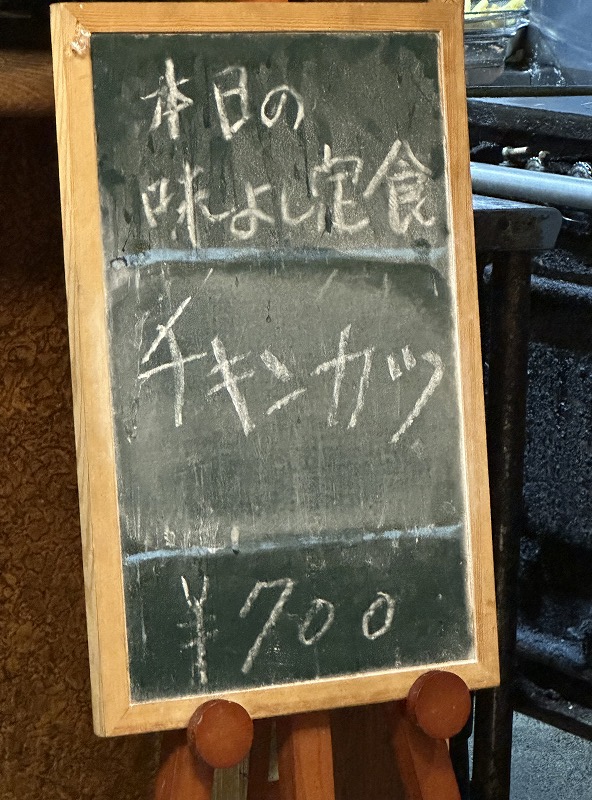 本日の
味よし定食
チキンカツ
¥700